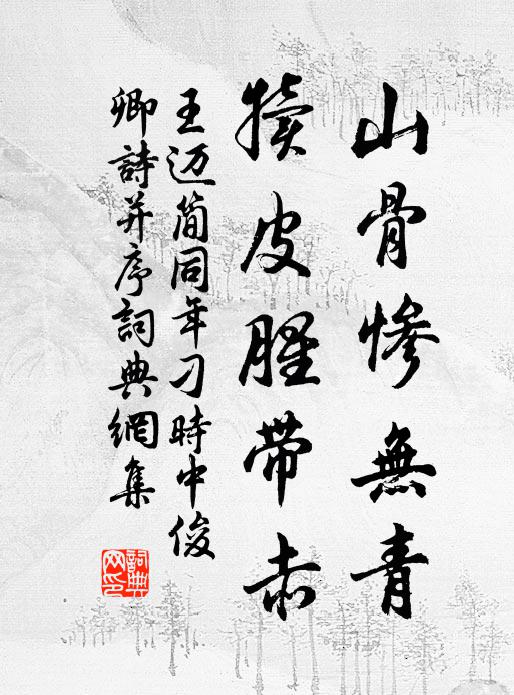 山骨慘無青
犢皮腥帶赤
王迈簡同年刁時中俊
卿詩并序詞典網集
詞典
网印